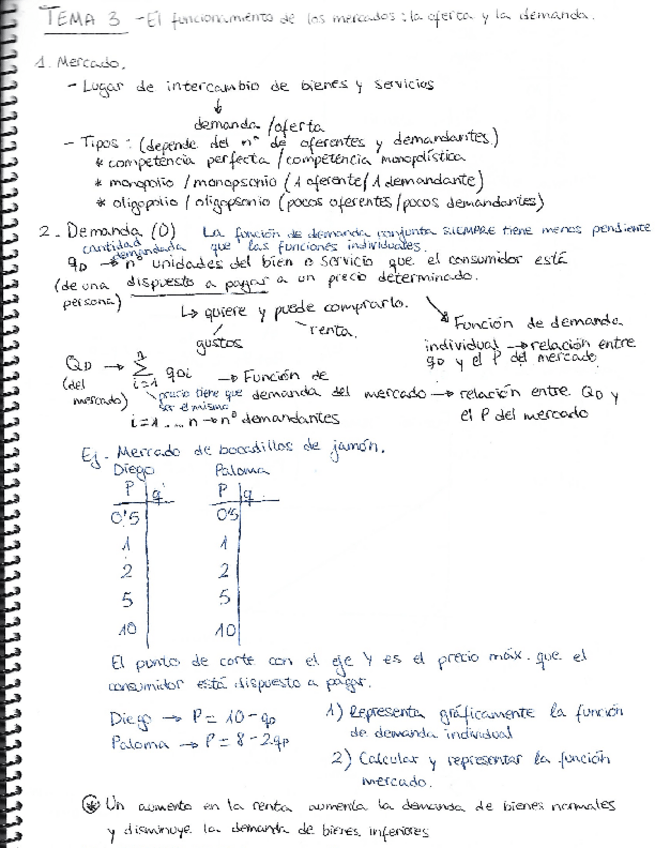 TEMA 3 - El funcionamiento de los mercados: la oferta y la demanda.
1. Mercado.
- Lugar de intercambio de bienes y servicios
↓
demanda/oferta
- Tipos: (depende del nº de oferentes y demandantes)
* competencia perfecta / competencia monopolística
* monopolio / monopsonio (1 oferente/1 demandante)
* oligopolio / oligopsonio (pocos oferentes/pocos demandantes)
2. Demanda (D) La función de demanda conjunta SIEMPRE tiene menos pendiente
que las funciones individuales.
cantidad demandada
qD → nº unidades del bien o servicio que el consumidor está
(de una persona) dispuesto a pagar a un precio determinado.
↳ quiere y puede comprarlo.
gustos renta.
Función de demanda
individual → relación entre
qD y el P del mercado
QD → n Σ i=1 qDi → Función de
(del mercado) demanda del mercado → relación entre QD y
el P del mercado
precio tiene que ser el mismo
i=1....n → nº demandantes
Ej. Mercado de bocadillos de jamón.
Diego Paloma
P | q P | q
0'5 0'5
1 1
2 2
5 5
10 10
El punto de corte con el eje Y es el precio máx. que el
consumidor está dispuesto a pagar.
Diego → P = 10 - qD
Paloma → P = 8 - 2qD
1) Representa gráficamente la función
de demanda individual
2) Calcular y representar la función
mercado.
* Un aumento en la renta aumenta la demanda de bienes normales
y disminuye la demanda de bienes inferiores